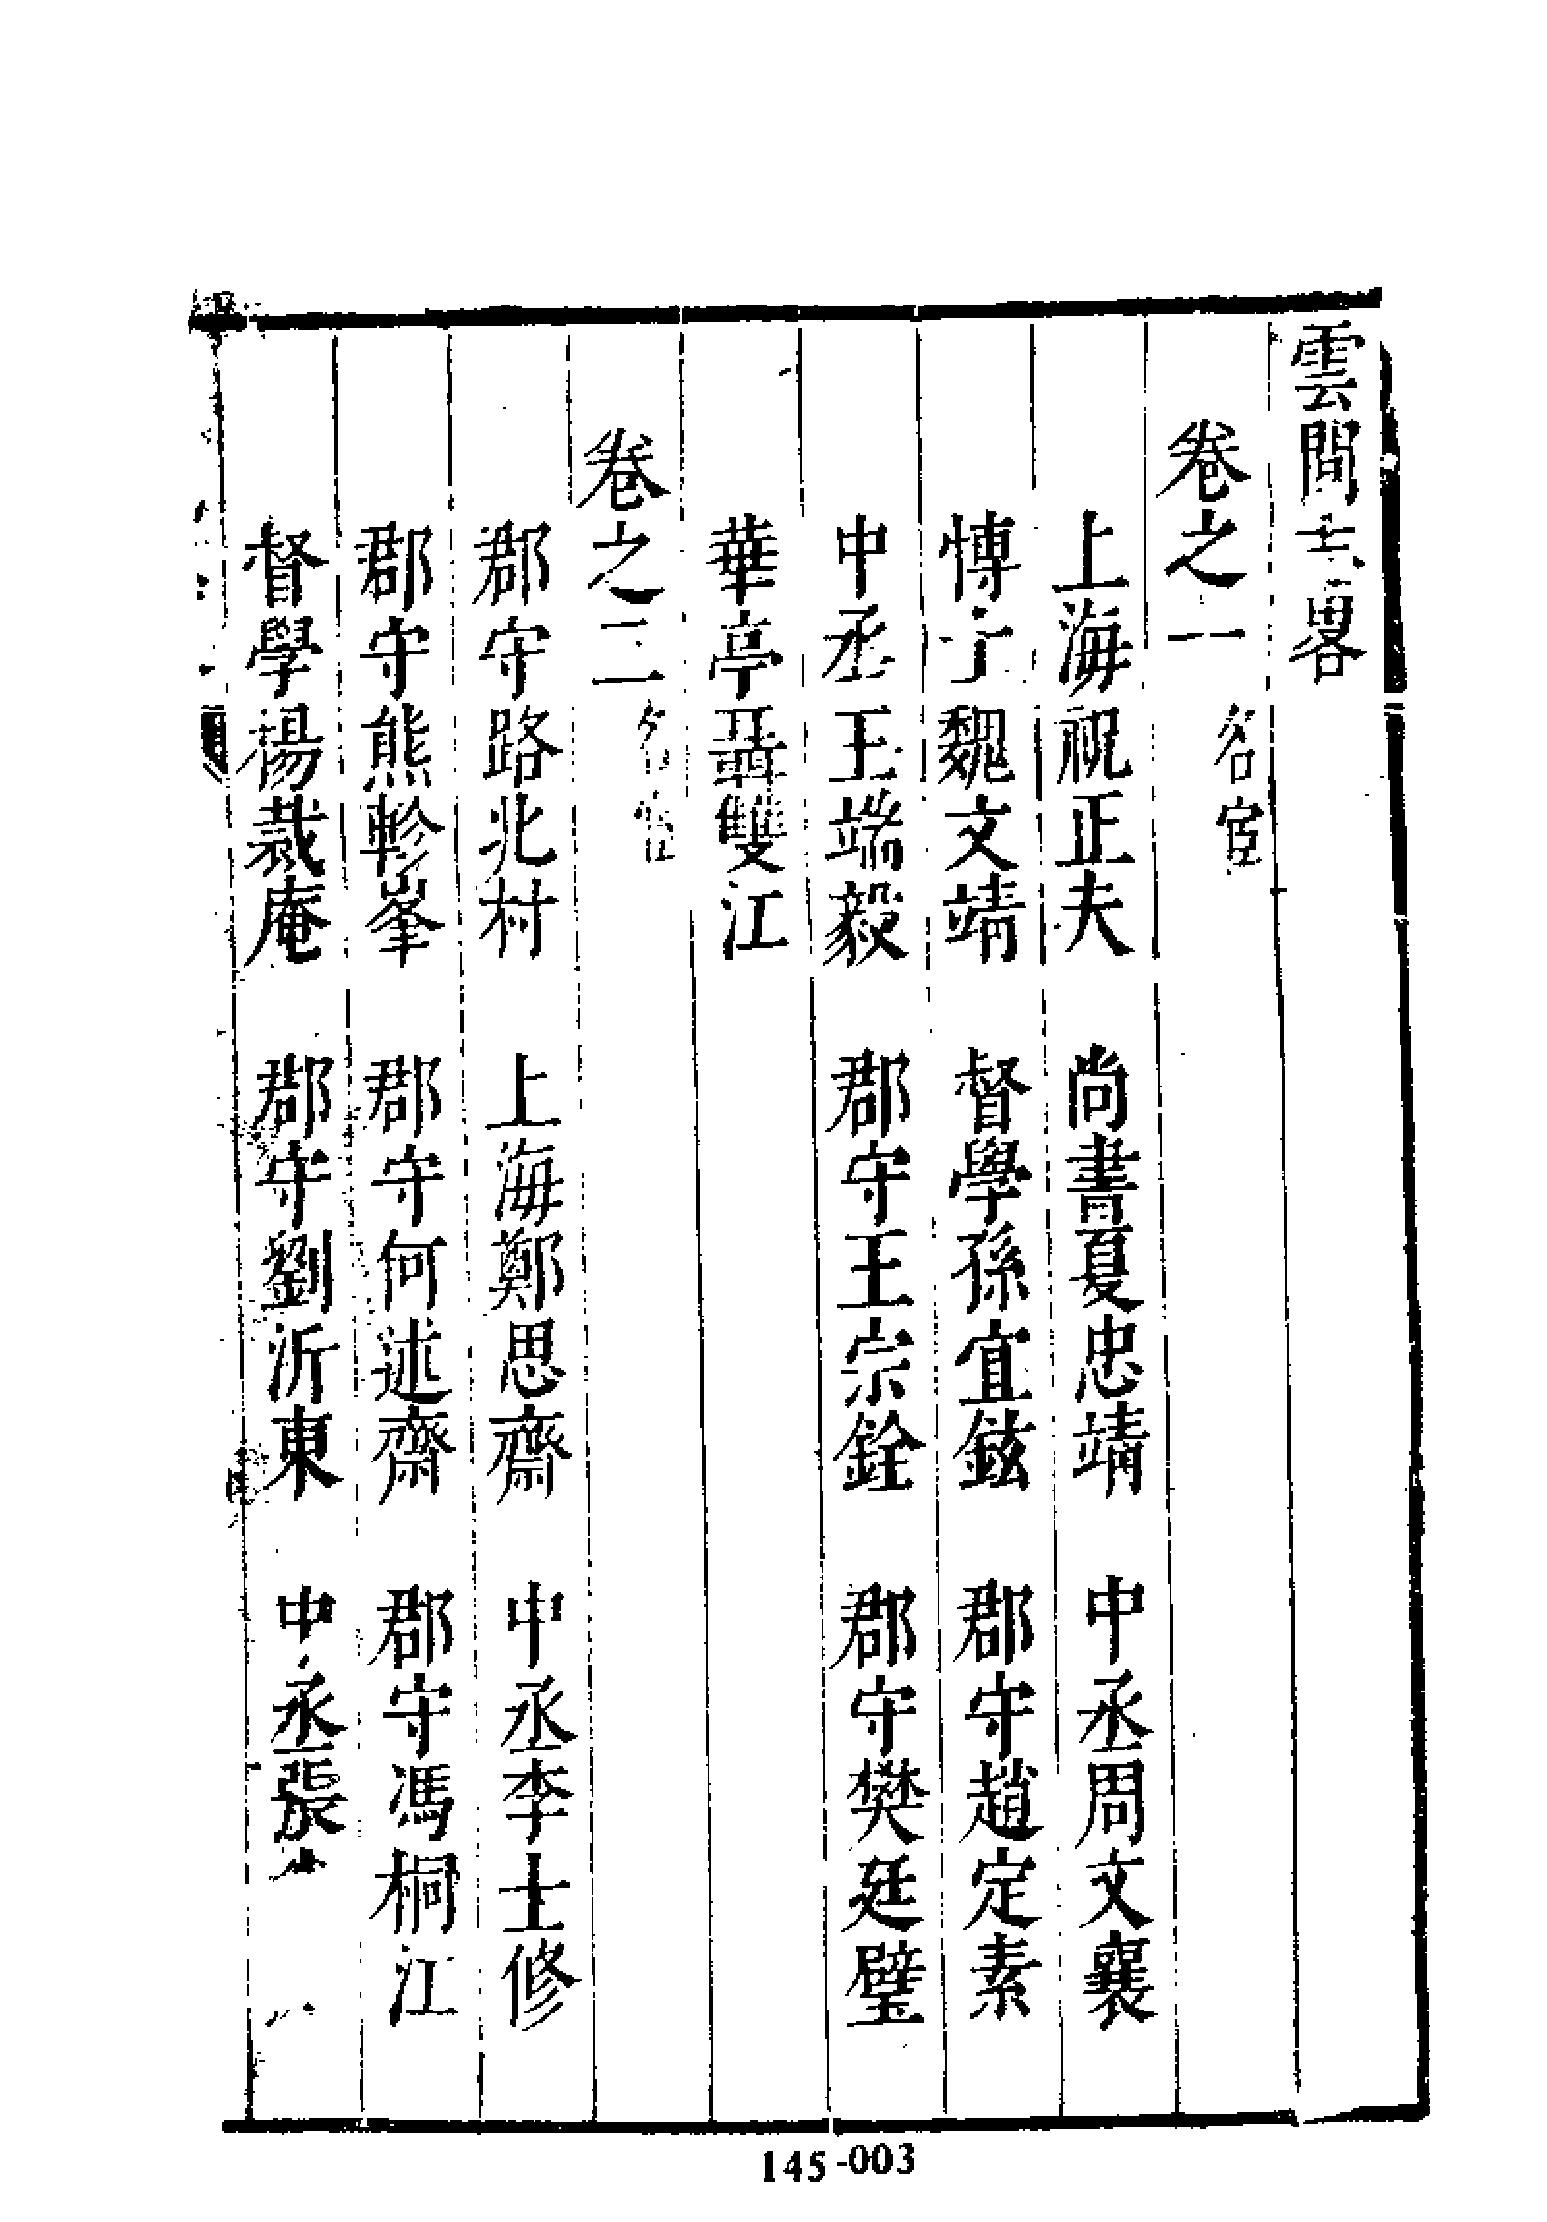 雲間志畧
卷之一 名宦
上海祝正夫 尚書夏忠靖 中丞周文襄
博士魏文靖 督學孫宜鉉 郡守趙定素
中丞王端毅 郡守王宗銓 郡守樊廷璧
華亭聶雙江
卷之二 名宦
郡守路北村 上海鄭思齋 中丞李士修
郡守熊軫峯 郡守何述齋 郡守馮桐江
督學楊裁庵 郡守劉沂東 中丞張
145-003